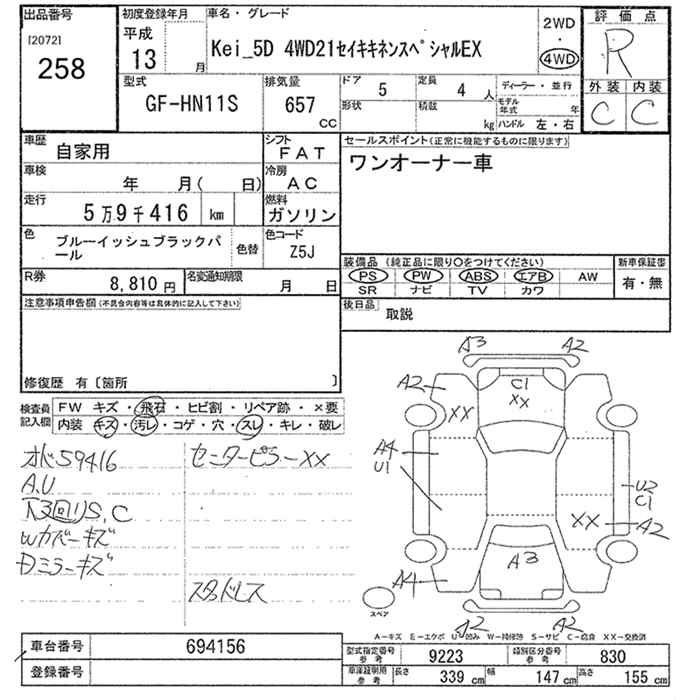 出品番号
[2072]
258
初度登録年月
平成
13 月
車名・グレード
Kei_5D 4WD21セイキキネンスペシャルEX
2WD
・
4WD
評価点
R
外装 内装
C C
型式
GF-HN11S
排気量
657
CC
ドア 5
定員 4 人
形状
積載 kg
ディーラー・並行
モデル年式 年
ハンドル 左・右
車歴
自家用
シフト
FAT
セールスポイント(正常に機能するものに限ります)
ワンオーナー車
車検
年 月( 日)
冷房
AC
走行
5万9千416 km
燃料
ガソリン
色
ブルーイッシュブラックパール
色替
色コード
Z5J
R券
8,810 円
名変通知期限
月 日
装備品(純正品に限り○をつけてください)
PS PW ABS エアB AW
SR ナビ TV カワ
新車保証書
有・無
注意事項申告欄(不具合内容等は具体的に記入して下さい)
後日品
取説
修復歴 有〔箇所 〕
検査員記入欄
FW キズ・飛石・ヒビ割・リペア跡・×要
内装 キズ・汚レ・コゲ・穴・スレ・キレ・破レ
オド59416
A,U
下3回りS,C
Wカバーキズ
Dミラーキズ
センターピラーXX
スタッドレス
A3 A2
A2 C1
XX XX
A4
U1
U2
C1
XX A2
A3
A4
A2 A2
スペア
A-キズ E-エクボ U-凹み W-補修跡 S-サビ C-腐食 XX-交換済
車台番号
694156
登録番号
型式指定番号 参考
9223
類別区分番号 参考
830
車庫証明用 参考
長さ 339 cm
幅 147 cm
高さ 155 cm